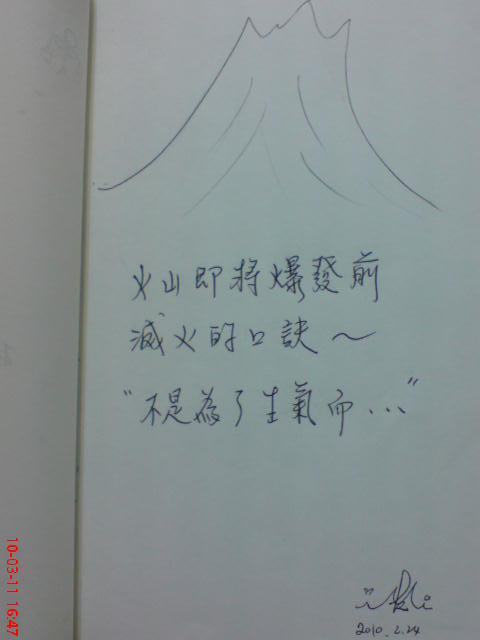 火山即將爆發前
滅火的口訣～
"不是為了生氣而..."
2010.2.24
10-03-11 16:47